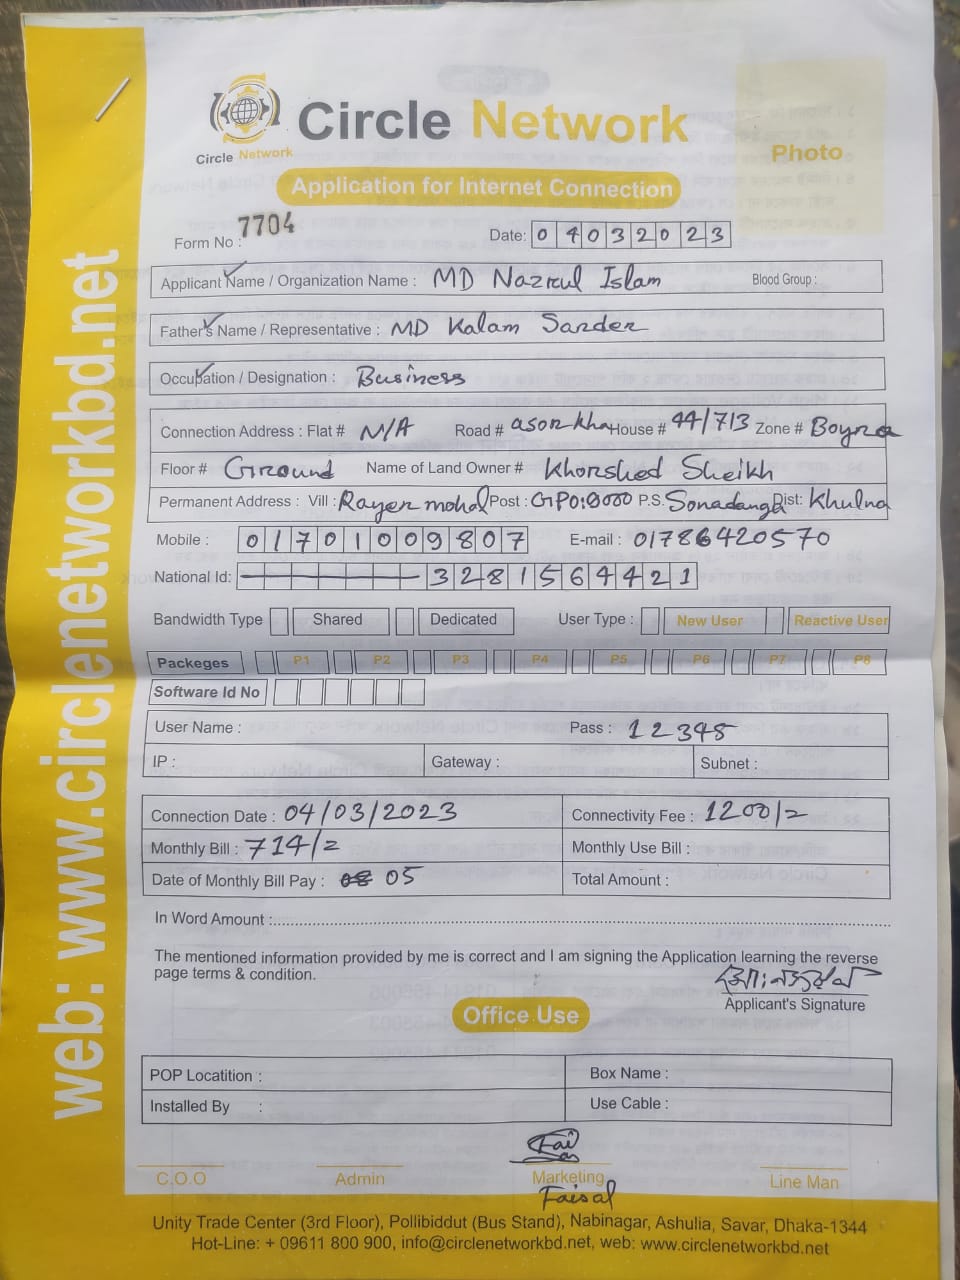 web: www.circlenetworkbd.net
Circle Network
Circle Network
Photo
Application for Internet Connection
Form No : 7704
Date: 04032023
Applicant Name / Organization Name : MD Nazrul Islam Blood Group :
Father's Name / Representative : MD Kalam Sarder
Occupation / Designation : Business
Connection Address : Flat # N/A Road # asor kha House # 44/713 Zone # Boyra
Floor # Ground Name of Land Owner # Khorshed Sheikh
Permanent Address : Vill : Rayer mohal Post : GPO:9000 P.S. Sonadanga Dist: Khulna
Mobile : 01701009807 E-mail : 01786420570
National Id: 3281564421
Bandwidth Type Shared Dedicated User Type : New User Reactive User
Packeges P1 P2 P3 P4 P5 P6 P7 P8
Software Id No
User Name : Pass : 12345
IP : Gateway : Subnet :
Connection Date : 04/03/2023 Connectivity Fee : 1200/=
Monthly Bill : 714/= Monthly Use Bill :
Date of Monthly Bill Pay : 05 Total Amount :
In Word Amount :
The mentioned information provided by me is correct and I am signing the Application learning the reverse
page terms & condition.
Applicant's Signature
Office Use
POP Locatition : Box Name :
Installed By : Use Cable :
C.O.O Admin Marketing Line Man
Faisal
Unity Trade Center (3rd Floor), Pollibiddut (Bus Stand), Nabinagar, Ashulia, Savar, Dhaka-1344
Hot-Line: + 09611 800 900, info@circlenetworkbd.net, web: www.circlenetworkbd.net